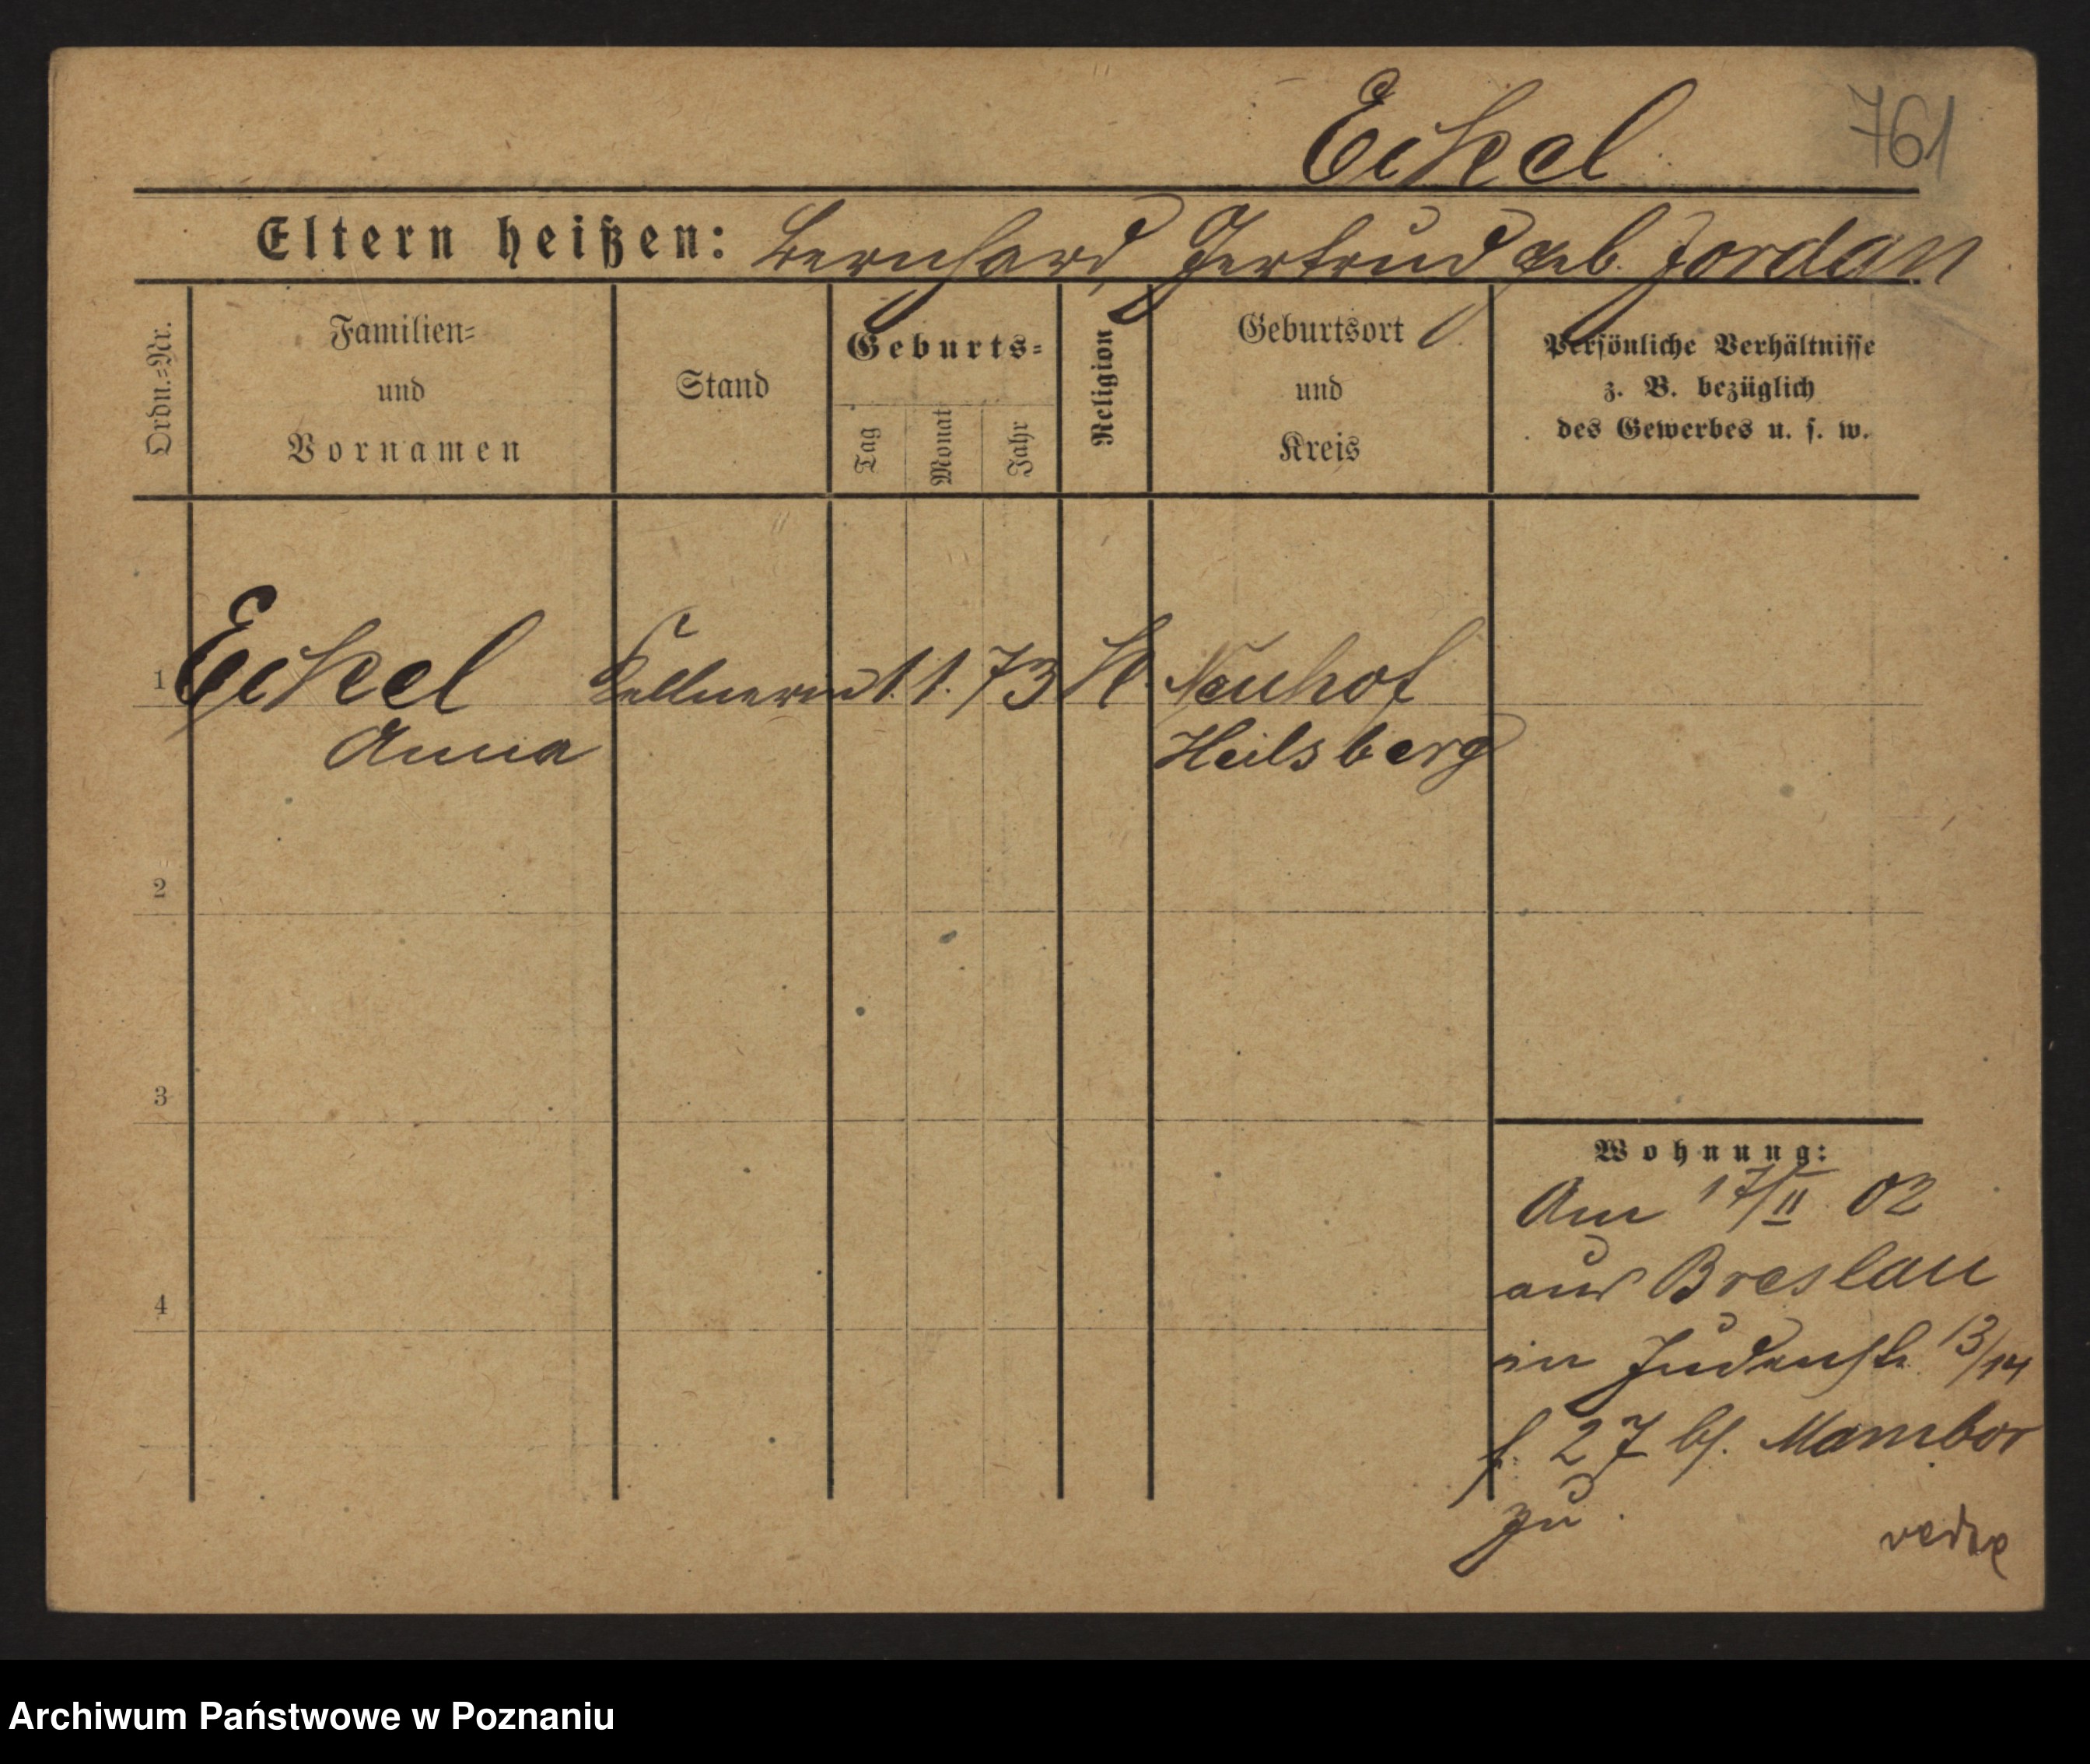 Eckel 761
Eltern heißen: Bernhard, Gertrud geb. Jordan
Ordn.=Nr.
Familien=
und
Vornamen
Stand
Geburts=
Tag
Monat
Jahr
Religion
Geburtsort
und
Kreis
Persönliche Verhältnisse
z. B. bezüglich
des Gewerbes u. s. w.
1 Eckel Kellnerin 1. 1. 73 K. Neuhof
Anna Heilsberg
2
3
4
Wohnung:
Am 17/II 02
aus Breslau
in Judenstr. 13/14
f. 27 bf. Mambor
zu.